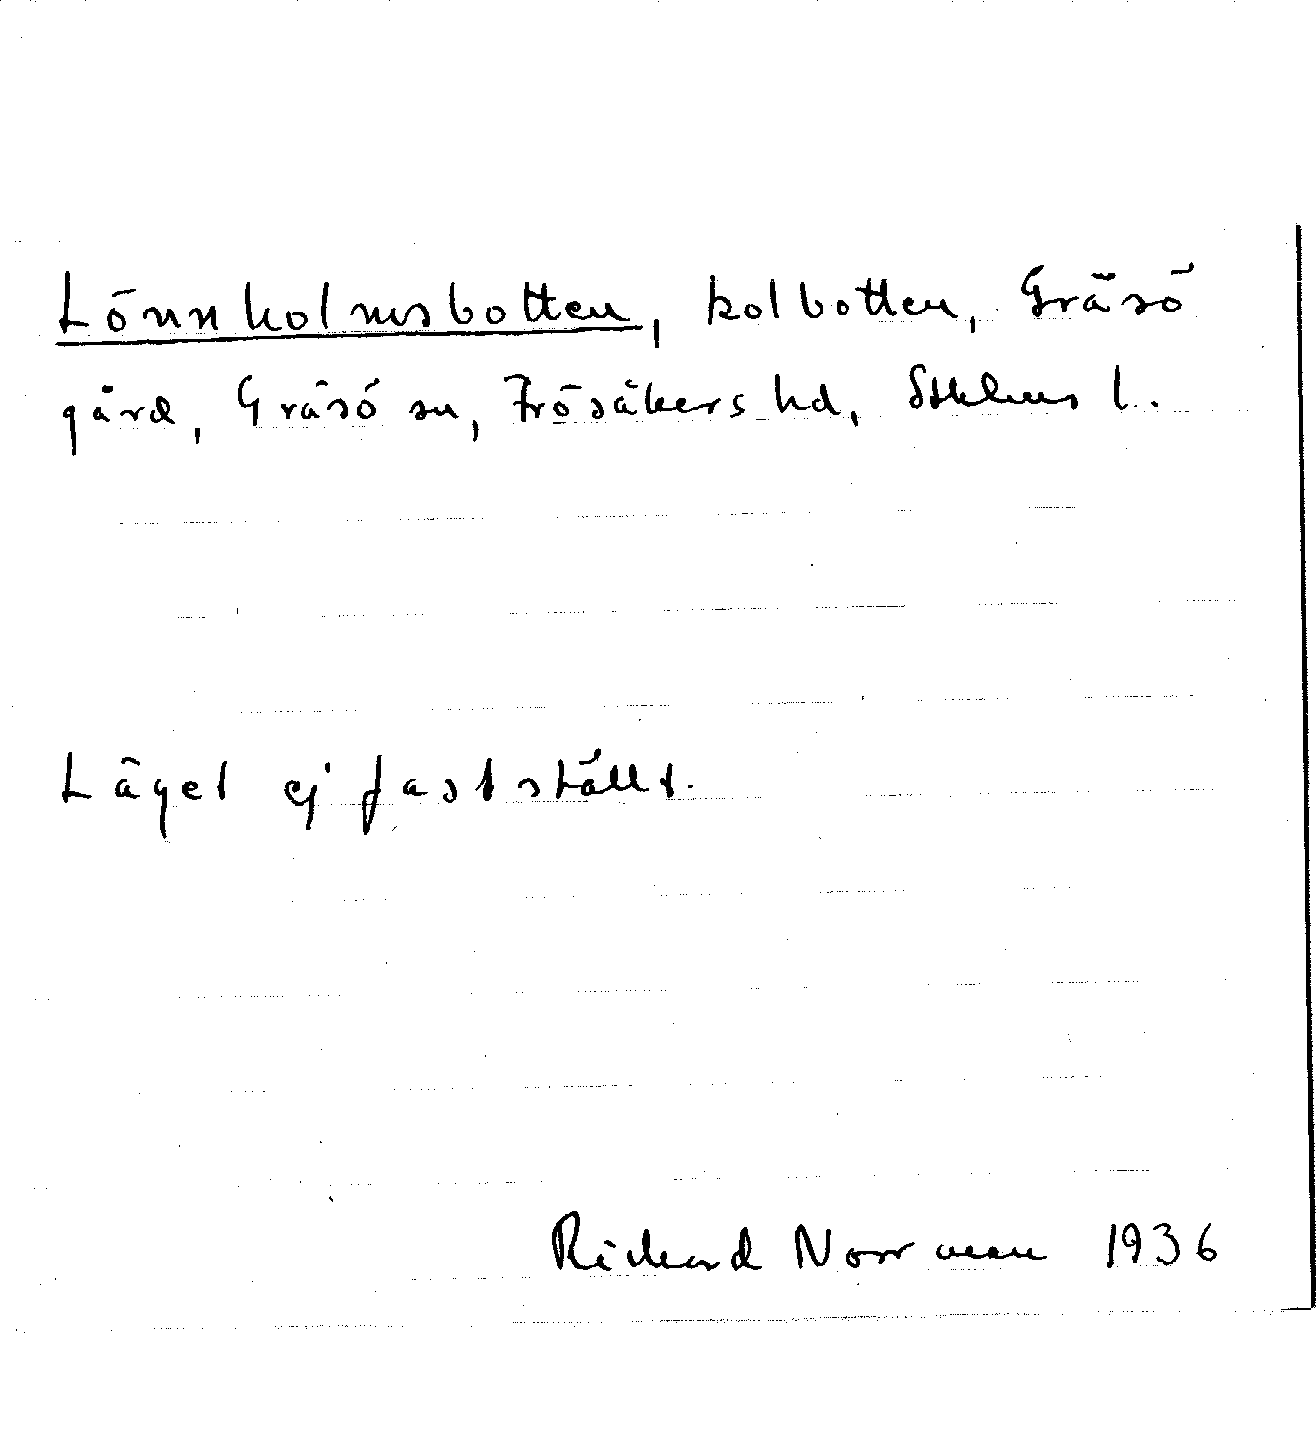 Lönnholmsbotten, kolbotten, Gräsö
gård, Gräsö sn, Frösåkers hd, Sthlms l.
Läget ej fastställt.
Richard Norrman 1936